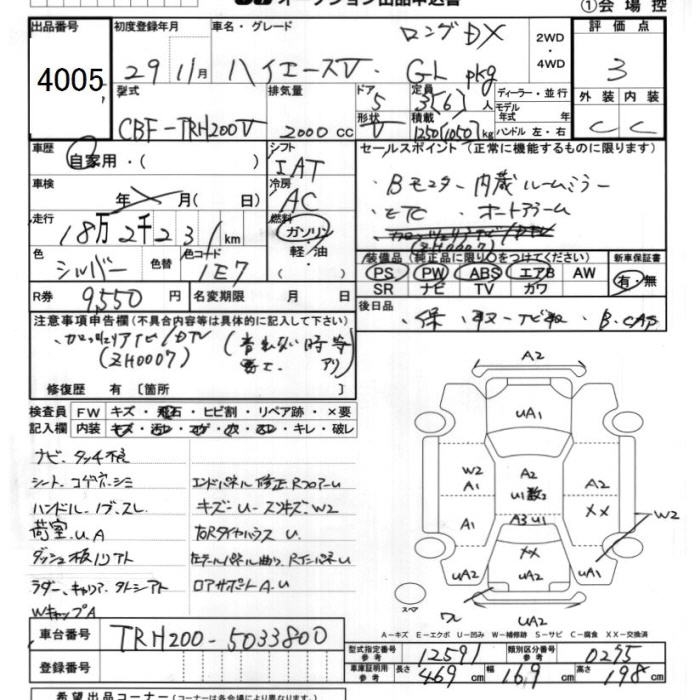 オークション出品申込書
①会場控
出品番号
4005
初度登録年月
29年 11月
車名・グレード
ロングDX
ハイエースV・GL pkg
2WD
・
4WD
評価点
3
外装 内装
C C
型式
CBF-TRH200V
排気量
2000 cc
ドア
5
形状
V
定員
3(6)人
積載
1250(1050)kg
ディーラー・並行
モデル
年式 年
ハンドル 左・右
車歴
自家用・( )
シフト
IAT
セールスポイント (正常に機能するものに限ります)
・Bモニター 内蔵ルームミラー
・ETC ・オートアラーム
(ZH0007)
車検
年 月( 日)
冷房
AC
走行
18万2千231km
燃料
ガソリン
・
軽・油
・( )
色
シルバー
色替
色コード
1E7
装備品 (純正品に限り○をつけてください)
PS PW ABS エアB AW
SR ナビ TV カワ
新車保証書
有・無
R券 9,550円
名変期限 月 日
後日品
・保・取・ナビ取・B.CAS
注意事項申告欄(不具合内容等は具体的に記入して下さい)
・カロッツェリアナビ/DTV
(ZH0007)
修復歴 有 [箇所 ]
検査員
記入欄
FW キズ・飛石・ヒビ割・リペア跡・×要
内装 キズ・汚レ・コゲ・穴・スレ・キレ・破レ
ナビ.タッチ不良
シート.コゲ穴.シミ
ハンドル.ノブ.スレ
荷室.UA
ダッシュ板リアト
ラダー.キャリア.タトシアト
WキャップA
エンドパネル修正.RコアーU
キズ-U-スリキズ.W2
左RタイヤハウスU.
左テールパネル曲り.RインパネU
ロアサポートA.U
A2
UA1
W2
A1
A2
U1数2
A2
XX
A1
A3U1
W2
XX
UA2
UA2
UA1
スペア
ワレ
UA2
A-キズ E-エクボ U-凹み W-補修跡 S-サビ C-腐食 XX-交換済
車台番号
TRH200-5033800
登録番号
型式指定番号
参考
12591
類別区分番号
参考
0235
車庫証明用
参考
長さ 469cm 幅 169cm 高さ 198cm
希望出品コーナー (コーナーは各会場により異なります)